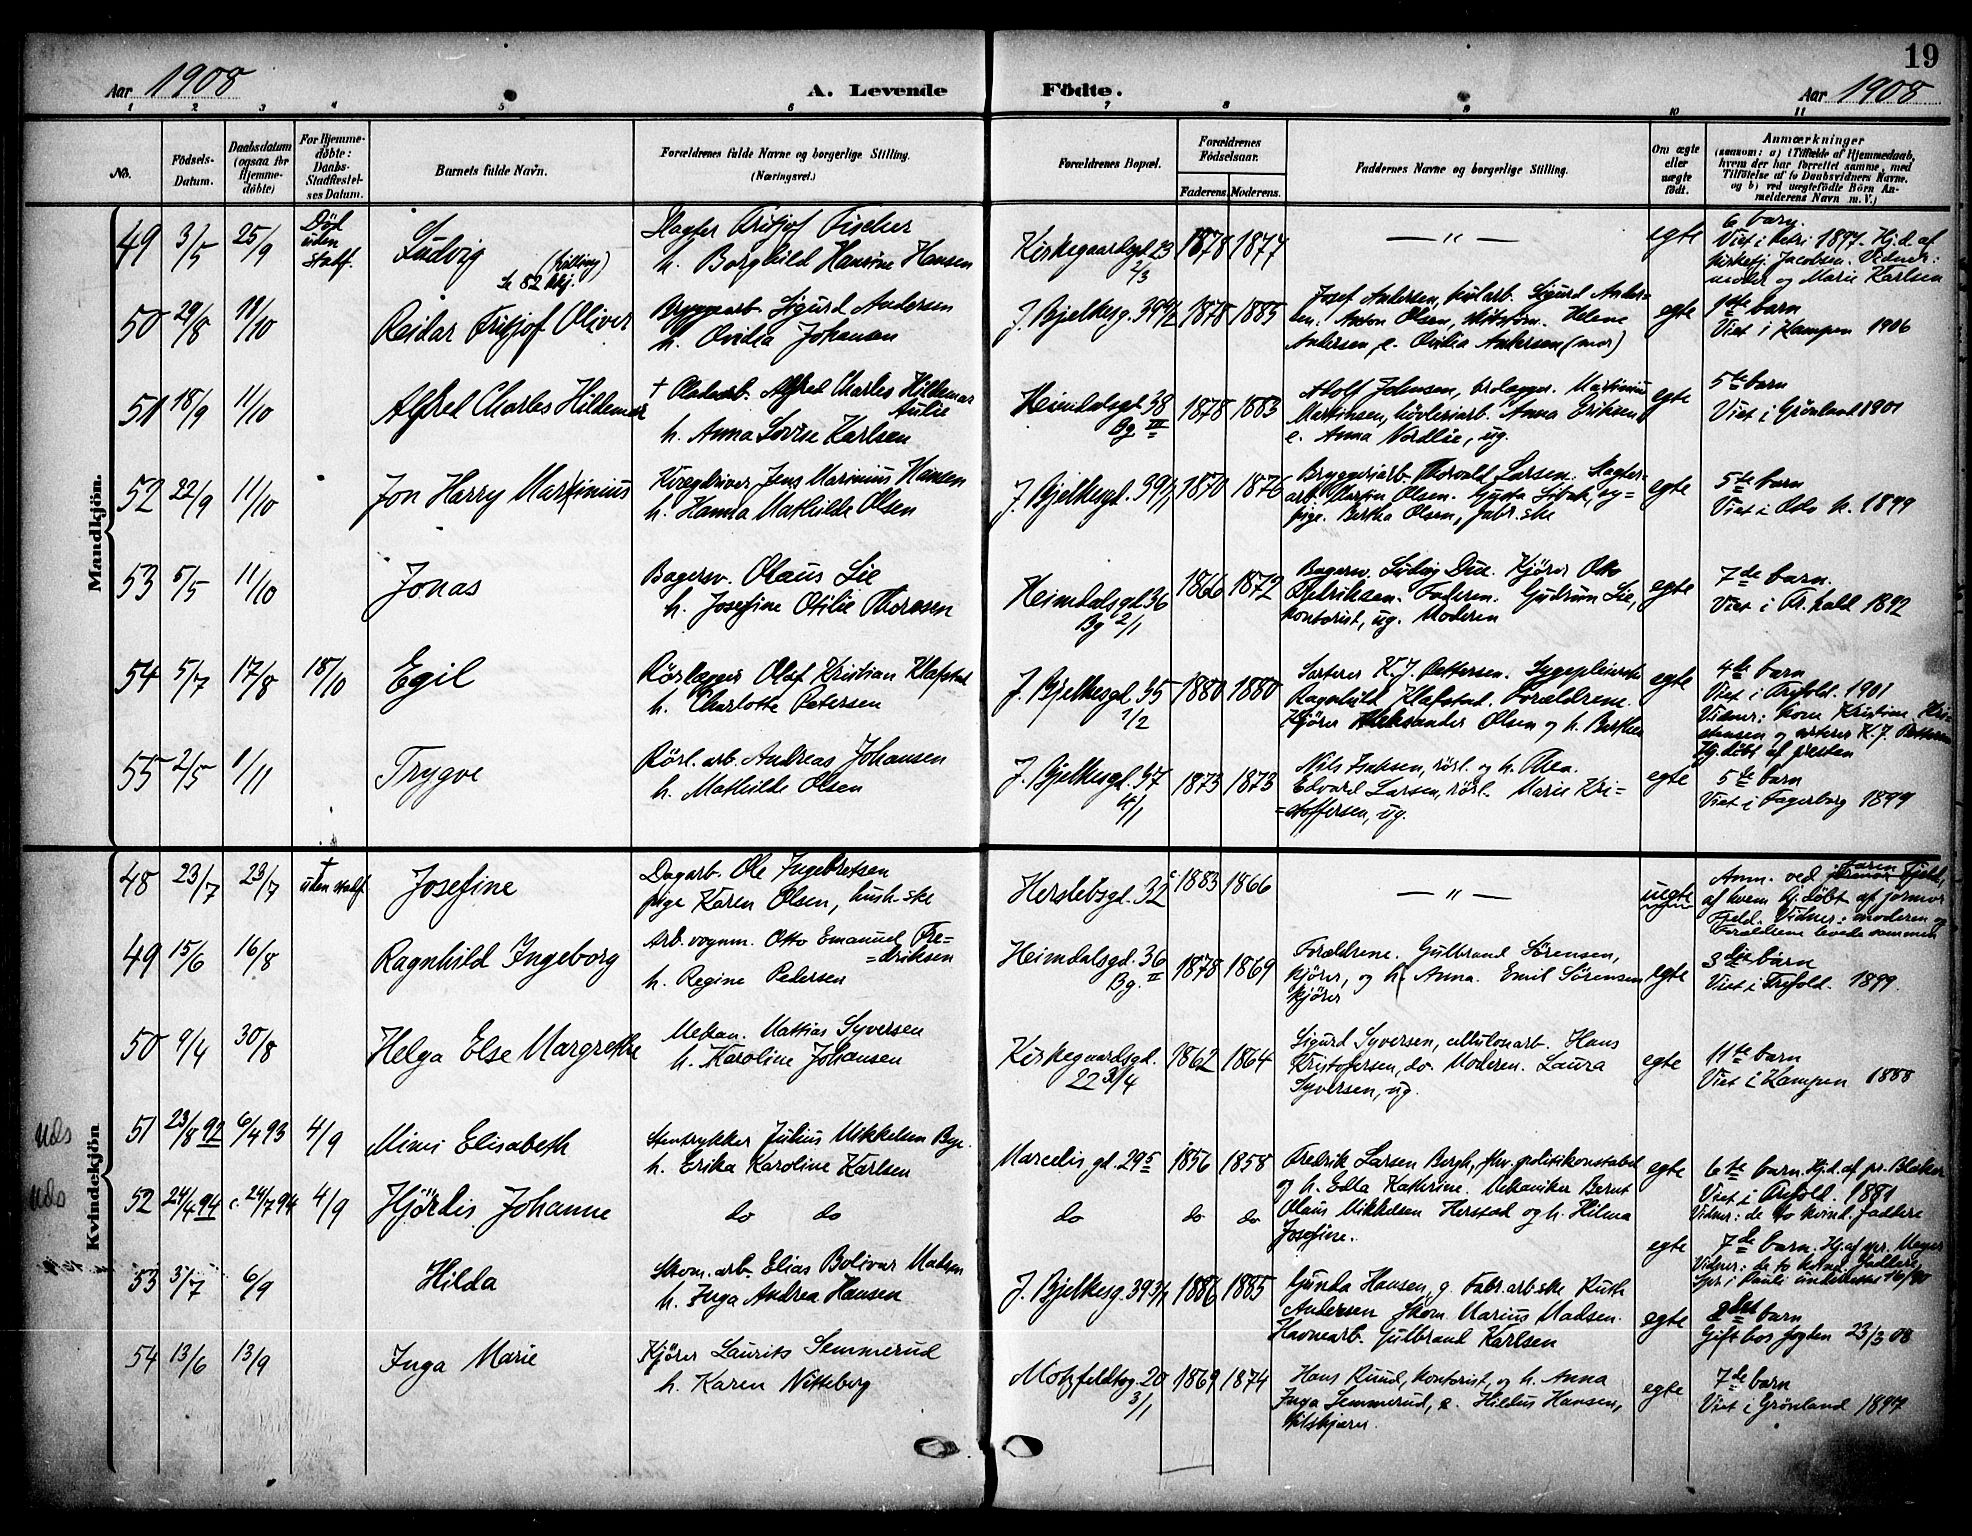 19
Aar 1908 A. Levende Födte. Aar 1908
1 2 3 4 5 6 7 8 9 10 11
No.
Födsels-Datum.
Daabsdatum (ogsaa for Hjemme-döbte)
For Hjemme-döbte: Daabs-Stadfæstel-ses Datum.
Barnets fulde Navn.
Forældrenes fulde Navne og borgerlige Stilling.
(Næringsvei.)
Forældrenes Bopæl.
Forældrenes Födselsaar.
Faderens. Moderens.
Faddernes Navne og borgerlige Stilling.
Om ægte eller uægte födt.
Anmærkninger
(saasom: a) i Tilfælde af Hjemmedaab,
hvem der har forrettet samme, med
Tilföielse af to Daabsvidners Navne,
og b) ved uægtefödte Börn An-
melderens Navn m. V.)
Mandkjön.
49 3/5 25/9 Död uden stadf. Ludvig
(tvilling)
Slagter Fritjof Fischer
h. Borghild Hansine Hansen
Kirkegaardsgd 23
2/3
1878 1877
— " —
egte
6 barn.
Viet i Petri 1897. Hj.d. af
Jacobsen. Vidner:
moder og Marie Karlsen
50 29/8 11/10 Reidar Fritjof Oliver
Bryggearb. Sigurd Andersen
h. Ovidia Johansen
J. Bjelkesg. 39 4/2
1878 1885
Josef Andersen, kularb. Sigurd Ander-
sen. Anton Olsen, Helene
Andersen, e. Ovidia Andersen (mor)
egte
1ste barn
Viet i Kampen 1906
51 18/9 11/10 Alfred Charles Hildemar
† Pladearb. Alfred Charles Hildemar
Aulie
h. Anna Lovise Karlsen
Heimdalsgd. 38
Bg III
1878 1883
Adolf Johnsen, brolægger. Martinius
Martinsen, høvleriarb. Anna Eriksen
e. Anna Nordlie, ug.
egte
5te barn
Viet i Grönland 1901
52 22/9 11/10 Jon Harry Martinius
Kvægdriver Jens Marinius Hansen
h. Hanna Mathilde Olsen
J. Bjelkesgd. 39
1870 1876
Bryggeriarb. Thorvald Larsen. Slagter-
arb. Martin Olsen.
pige. Bertha Olsen, fabr.ske
egte
5te barn
Viet i Oslo k. 1899
53 5/5 11/10 Jonas
Bagersv. Olaus Lie
h. Josefine Otilie Thoresen
Heimdalsgd 36
Bg 2/1
1866 1872
Bagersv. Ludvig Due. Kjörer Otto
Fredriksen. Faderen. Gudrun Lie,
kontorist, ug. Moderen
egte
7de barn.
Viet i Fr.hald 1892
54 5/7 17/8 18/10 Egil
Rörlægger Olaf Kristian Klafstad
h. Charlotte Petersen
J. Bjelkesgd. 35
1/2
1880 1880
Sorterer K. J. Pettersen. Sygepleierske
Ragnhild Klafstad. Forældrene.
Kjörer Aleksander Olsen og h. Berthea
egte
4de barn
Viet i Trefold. 1901
Vidner: kone Kristine Kri-
stensen og sorterer K. J. Pettersen
Hj. döbt af presten
55 2/5 1/11 Trygve
Rörl. arb. Andreas Johansen
h. Mathilde Olsen
J. Bjelkesgd. 37
4/1
1873 1873
Nils Isaksen, rörl. og h. Thea.
Edvard Larsen, rörl. Marie Kri-
=stoffersen, ug.
egte
5te barn
Viet i Fagerborg 1899
Kvindekjön
48 23/7 23/7 † uden stadf Josefine
Dagarb. Ole Ingebretsen
pige Karen Olsen, hush.ske
Herslebsgd. 32
1883 1866
— " —
uegte
Anm. ved
af hvem hj.döbt af jormor
Fjeld. Vidner: moderen og
Forældrene levede sammen
49 15/6 16/8 Ragnhild Ingeborg
Arb. vognm. Otto Emanuel Fre-
=driksen
h. Regine Pedersen
Heimdalsgd. 36
Bg. II
1878 1869
Forældrene. Gulbrand Sörensen,
kjörer, og h. Anna. Emil Sörensen
kjörer
egte
3die barn
Viet i Trefold. 1899.
50 9/4 30/8 Helga Else Margrethe
Mekan. Mattias Syversen
h. Karoline Johansen
Kirkegaardsgd.
22 3/4
1862 1864
Sigurd Syversen, cellulosarb. Hans
Kristofersen, do. Moderen. Laura
Syversen, ug.
egte
11te barn
Viet i Kampen 1888
Uds 51 23/8 92 6/4 93 4/9 Mimi Elisabeth
Stentrykker Julius Mikkelsen Bye.
h. Erika Karoline Karlsen
Marcelis gd. 29
1856 1858
Fredrik Larsen Bergh, fhv. politikonstabel
og h. Edla Kathrine. Mekaniker Bernt
Olaus Mikkelsen Herstad og h. Hilma
Josefine.
egte
6te barn. Hj.d. af pr. Blaker
Viet i Trefold. 1881
Vidner: de to kvind. faddere
Uds 52 24/4 94 c. 24/7 94 4/9 Hjördis Johanne
do do
do
do do
egte
7de barn. Hj. af pr. Meyer
Vidner: de to kvind. faddere
53 3/7 6/9 Hilda
Skom. arb. Elias Bolivar Madsen
h. Inga Andrea Hansen
J. Bjelkesg. 39
1886 1885
Gunda Hansen, g. Fabr.arb.ske Ruth
Andersen Skom. Marius Madsen.
Havnearb. Gulbrand Karlsen
egte
2det barn
Gift hos fogden 23/3 08
54 13/6 13/9 Inga Marie
Kjörer Laurits Semmerud
h. Karen Nitteberg
Motzfeldtsg. 20
3/1
1869 1874
Hans Ruud, kontorist, og h. Anna
Inga Semmerud, e. Hildus Hansen,
egte
7de barn
Viet i Grönland 1897